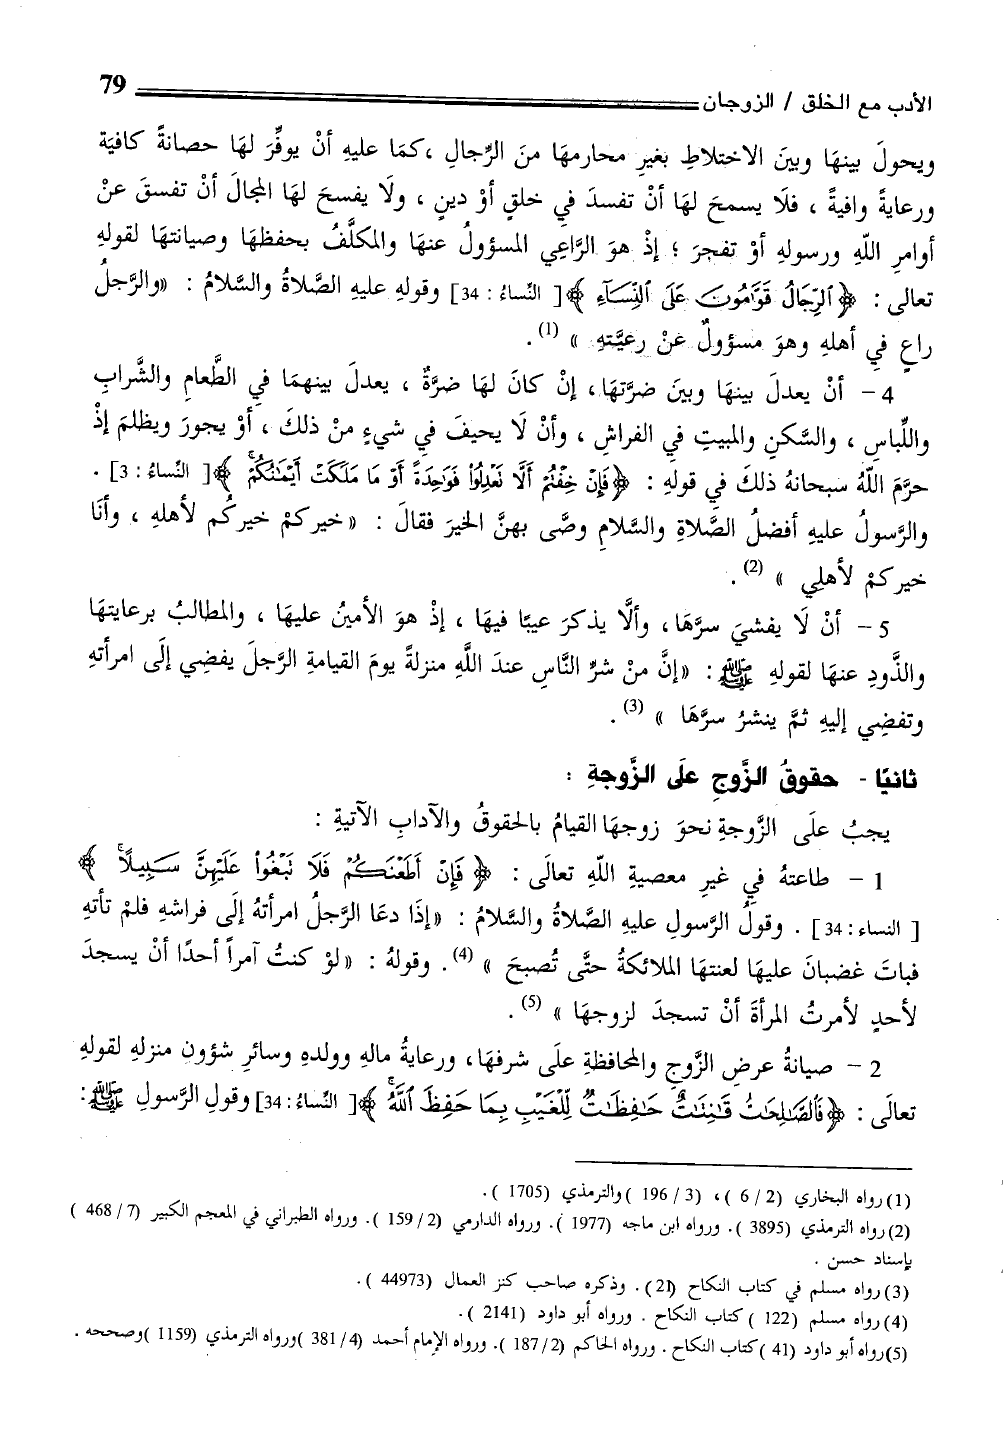 الأدب مع الخلق / الزوجان 79
ويحولَ بينهَا وبينَ الاختلاطِ بغيرِ محارمهَا منَ الرِّجالِ ، كمَا عليهِ أنْ يوفِّرَ لهَا حصانةً كافيَة
ورعايةً وافيةً ، فلَا يسمحَ لهَا أنْ تفسدَ في خلقٍ أوْ دينٍ ، ولَا يفسحَ لهَا المجالَ أنْ تفسقَ عنْ
أوامرِ اللَّهِ ورسولهِ أوْ تفجرَ ؛ إذْ هوَ الرَّاعِي المسؤولُ عنهَا والمكلَّفُ بحفظهَا وصيانتهَا لقولهِ
تعالى : ﴿ ٱلرِّجَالُ قَوَّٰمُونَ عَلَى ٱلنِّسَآءِ ﴾ [ النِّساءُ : 34] وقولهِ عليهِ الصَّلاةُ والسَّلامُ : « والرَّجلُ
راعٍ في أهلهِ وهوَ مسؤولٌ عنْ رعيَّتهِ » (1) .
4 – أنْ يعدلَ بينهَا وبينَ ضرَّتهَا، إنْ كانَ لهَا ضرَّةٌ ، يعدلَ بينهمَا في الطَّعامِ والشَّرابِ
واللِّباسِ ، والسَّكنِ والمبيتِ في الفراشِ ، وأنْ لَا يحيفَ في شيءٍ منْ ذلكَ ، أوْ يجورَ ويظلمَ إذْ
حرَّمَ اللَّهُ سبحانهُ ذلكَ في قولهِ : ﴿ فَإِنْ خِفْتُمْ أَلَّا تَعْدِلُواْ فَوَٰحِدَةً أَوْ مَا مَلَكَتْ أَيْمَٰنُكُمْ ﴾ [ النِّساءُ : 3] .
والرَّسولُ عليهِ أفضلُ الصَّلاةِ والسَّلامِ وصَّى بهنَّ الخيرَ فقالَ : « خيركمْ خيركُم لأهلهِ ، وأنَا
خيركمْ لأهلِي » (2) .
5 – أنْ لَا يفشيَ سرَّهَا، وألَّا يذكرَ عيبًا فيهَا ، إذْ هوَ الأمينُ عليهَا ، والمطالبُ برعايتهَا
والذَّودِ عنهَا لقولهِ ﷺ : « إنَّ منْ شرِّ النَّاسِ عندَ اللَّهِ منزلةً يومَ القيامةِ الرَّجلَ يفضِي إلَى امرأتهِ
وتفضِي إليهِ ثمَّ ينشرُ سرَّهَا » (3) .
ثانيًا - حقوقُ الزَّوجِ علَى الزَّوجةِ :
يجبُ علَى الزَّوجةِ نحوَ زوجهَا القيامُ بالحقوقُ والآدابِ الآتيةِ :
1 – طاعتهُ في غيرِ معصيةِ اللَّهِ تعالَى : ﴿ فَإِنْ أَطَعْنَكُمْ فَلَا تَبْغُواْ عَلَيْهِنَّ سَبِيلًا ﴾
[ النساء : 34 ] . وقولُ الرَّسولِ عليهِ الصَّلاةُ والسَّلامُ : « إذَا دعَا الرَّجلُ امرأتهُ إلَى فراشهِ فلمْ تأتهِ
فباتَ غضبانَ عليهَا لعنتهَا الملائكةُ حتَّى تُصبحَ » (4) . وقولهُ : « لوْ كنتُ آمراً أحدًا أنْ يسجدَ
لأحدٍ لأمرتُ المرأةَ أنْ تسجدَ لزوجهَا » (5) .
2 – صيانةُ عرضِ الزَّوجِ والمحافظةِ علَى شرفهَا، ورعايةُ مالهِ وولدهِ وسائرِ شؤونِ منزلهِ لقولهِ
تعالَى : ﴿ فَٱلصَّٰلِحَٰتُ قَٰنِتَٰتٌ حَٰفِظَٰتٌ لِّلْغَيْبِ بِمَا حَفِظَ ٱللَّهُ ﴾ [ النِّساءُ : 34] وقولِ الرَّسولِ ﷺ :
(1) رواه البخاري (2 / 6 ) ، (3 / 196 ) والترمذي (1705 ) .
(2) رواه الترمذي (3895 ) . ورواه ابن ماجه (1977 ) . ورواه الدارمي (2 / 159 ) . ورواه الطبراني في المعجم الكبير (7 / 468 )
بإسناد حسن .
(3) رواه مسلم في كتاب النكاح (21) . وذكره صاحب كنز العمال (44973 ) .
(4) رواه مسلم (122 ) كتاب النكاح . ورواه أبو داود (2141 ) .
(5) رواه أبو داود (41 ) كتاب النكاح . ورواه الحاكم (2 / 187 ) . ورواه الإمام أحمد (4 / 381 ) ورواه الترمذي (1159 ) وصححه .